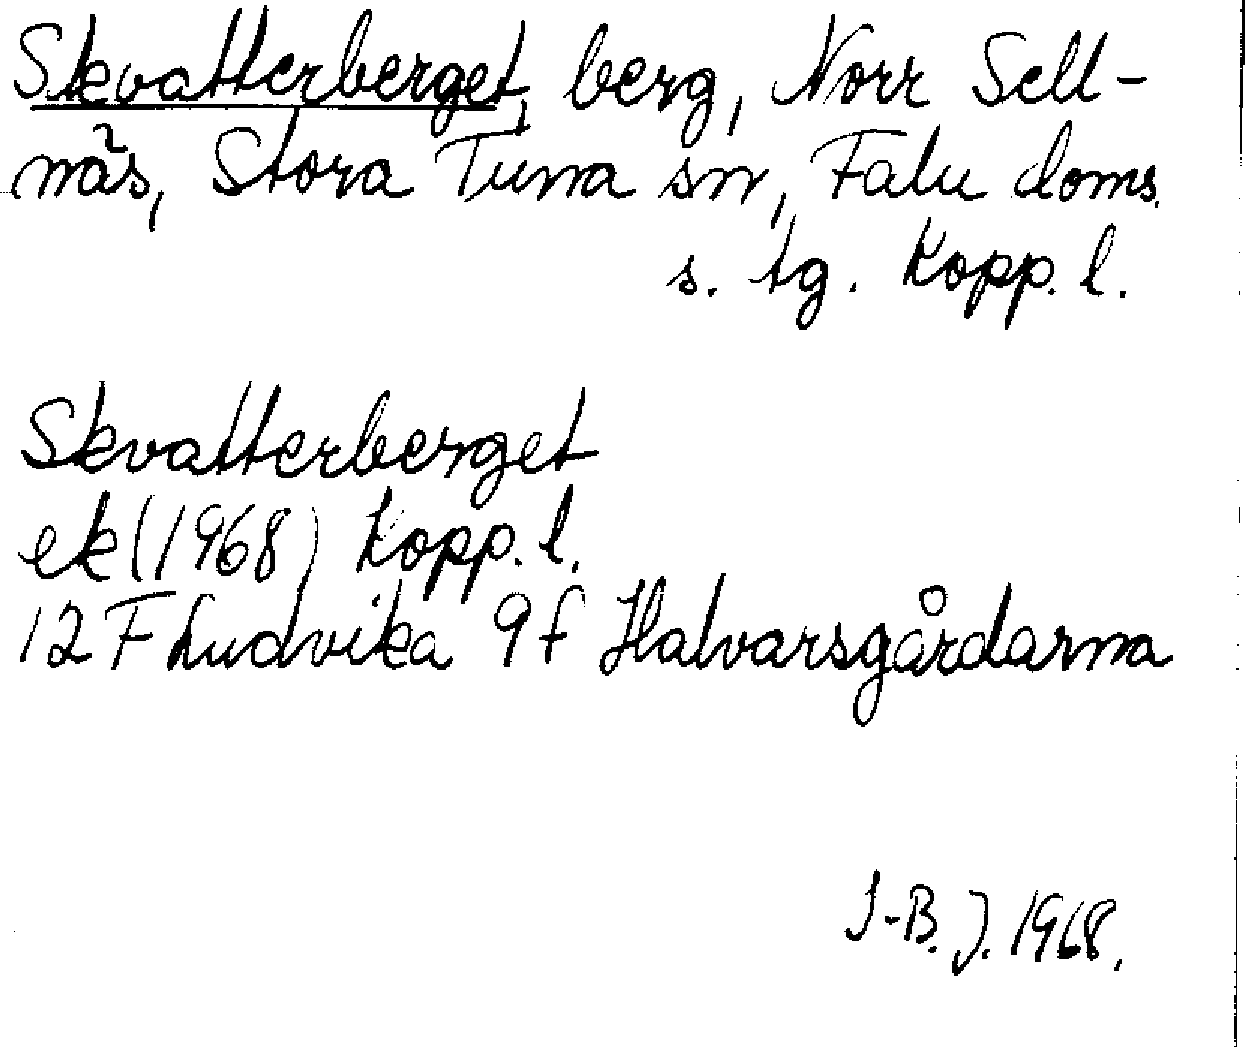 Skvatterberget, berg, Norr Sell-
näs, Stora Tuna sn, Falu doms.
s. tg. Kopp. l.
Skvatterberget
ek (1968) Kopp. l.
12 F Ludvika 9 f Halvarsgårdarna
I-B. J. 1968.